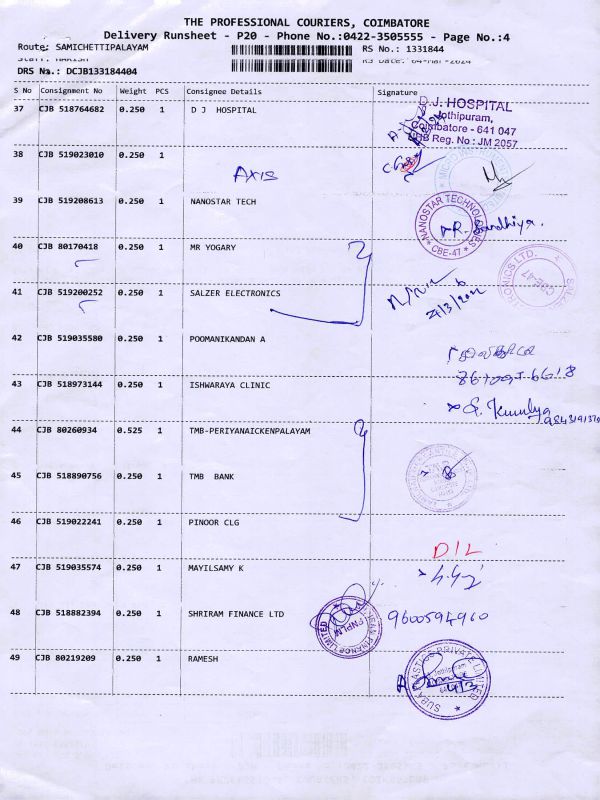 THE PROFESSIONAL COURIERS, COIMBATORE
Delivery Runsheet - P20 - Phone No.:0422-3505555 - Page No.:4
Route: SAMICHETTIPALAYAM RS No.: 1331844
DRS No.: DCJB133184404
S No Consignment No Weight PCS Consignee Details Signature
37 CJB 518764682 0.250 1 D J HOSPITAL
D.J. HOSPITAL
Jothipuram,
Coimbatore - 641 047
Reg. No : JM 2057
38 CJB 519023010 0.250 1
AXIS
39 CJB 519208613 0.250 1 NANOSTAR TECH
NANOSTAR TECHNOLOGIES
CBE-47
R. Sandhiya.
40 CJB 80170418 0.250 1 MR YOGARY
41 CJB 519200252 0.250 1 SALZER ELECTRONICS
CBE-47
42 CJB 519035580 0.250 1 POOMANIKANDAN A
43 CJB 518973144 0.250 1 ISHWARAYA CLINIC
44 CJB 80260934 0.525 1 TMB-PERIYANAICKENPALAYAM
45 CJB 518890756 0.250 1 TMB BANK
46 CJB 519022241 0.250 1 PINOOR CLG
D/L
47 CJB 519035574 0.250 1 MAYILSAMY K
48 CJB 518882394 0.250 1 SHRIRAM FINANCE LTD
9600594960
49 CJB 80219209 0.250 1 RAMESH